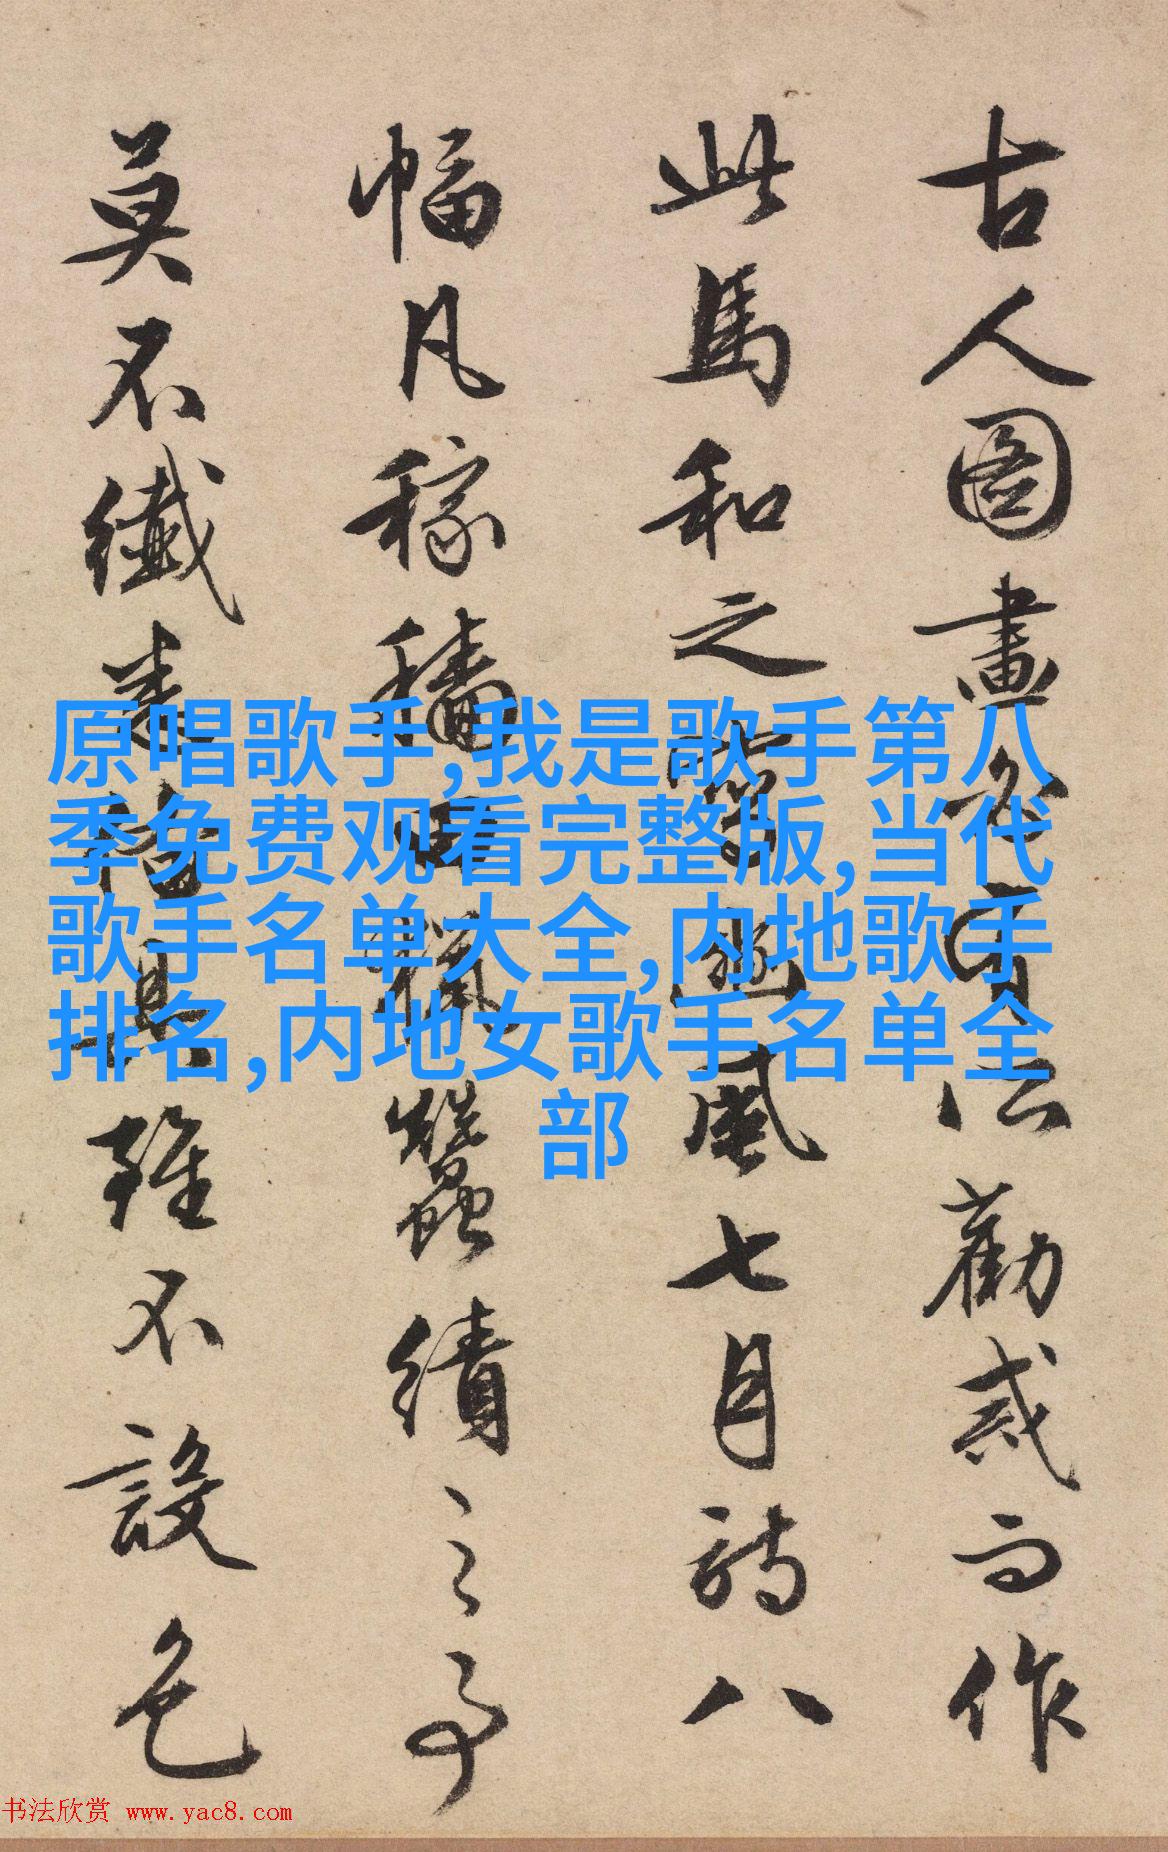 古人圖畫必有以勸戒而作
此馬和之寫豳風七月詩八
幅凡稼穡田獵蠶績之事
莫不纖悉備具雖不設色
原唱歌手,我是歌手第八
季免费观看完整版,当代
歌手名单大全,内地歌手
排名,内地女歌手名单全
部
书法欣赏 www.yac8.com